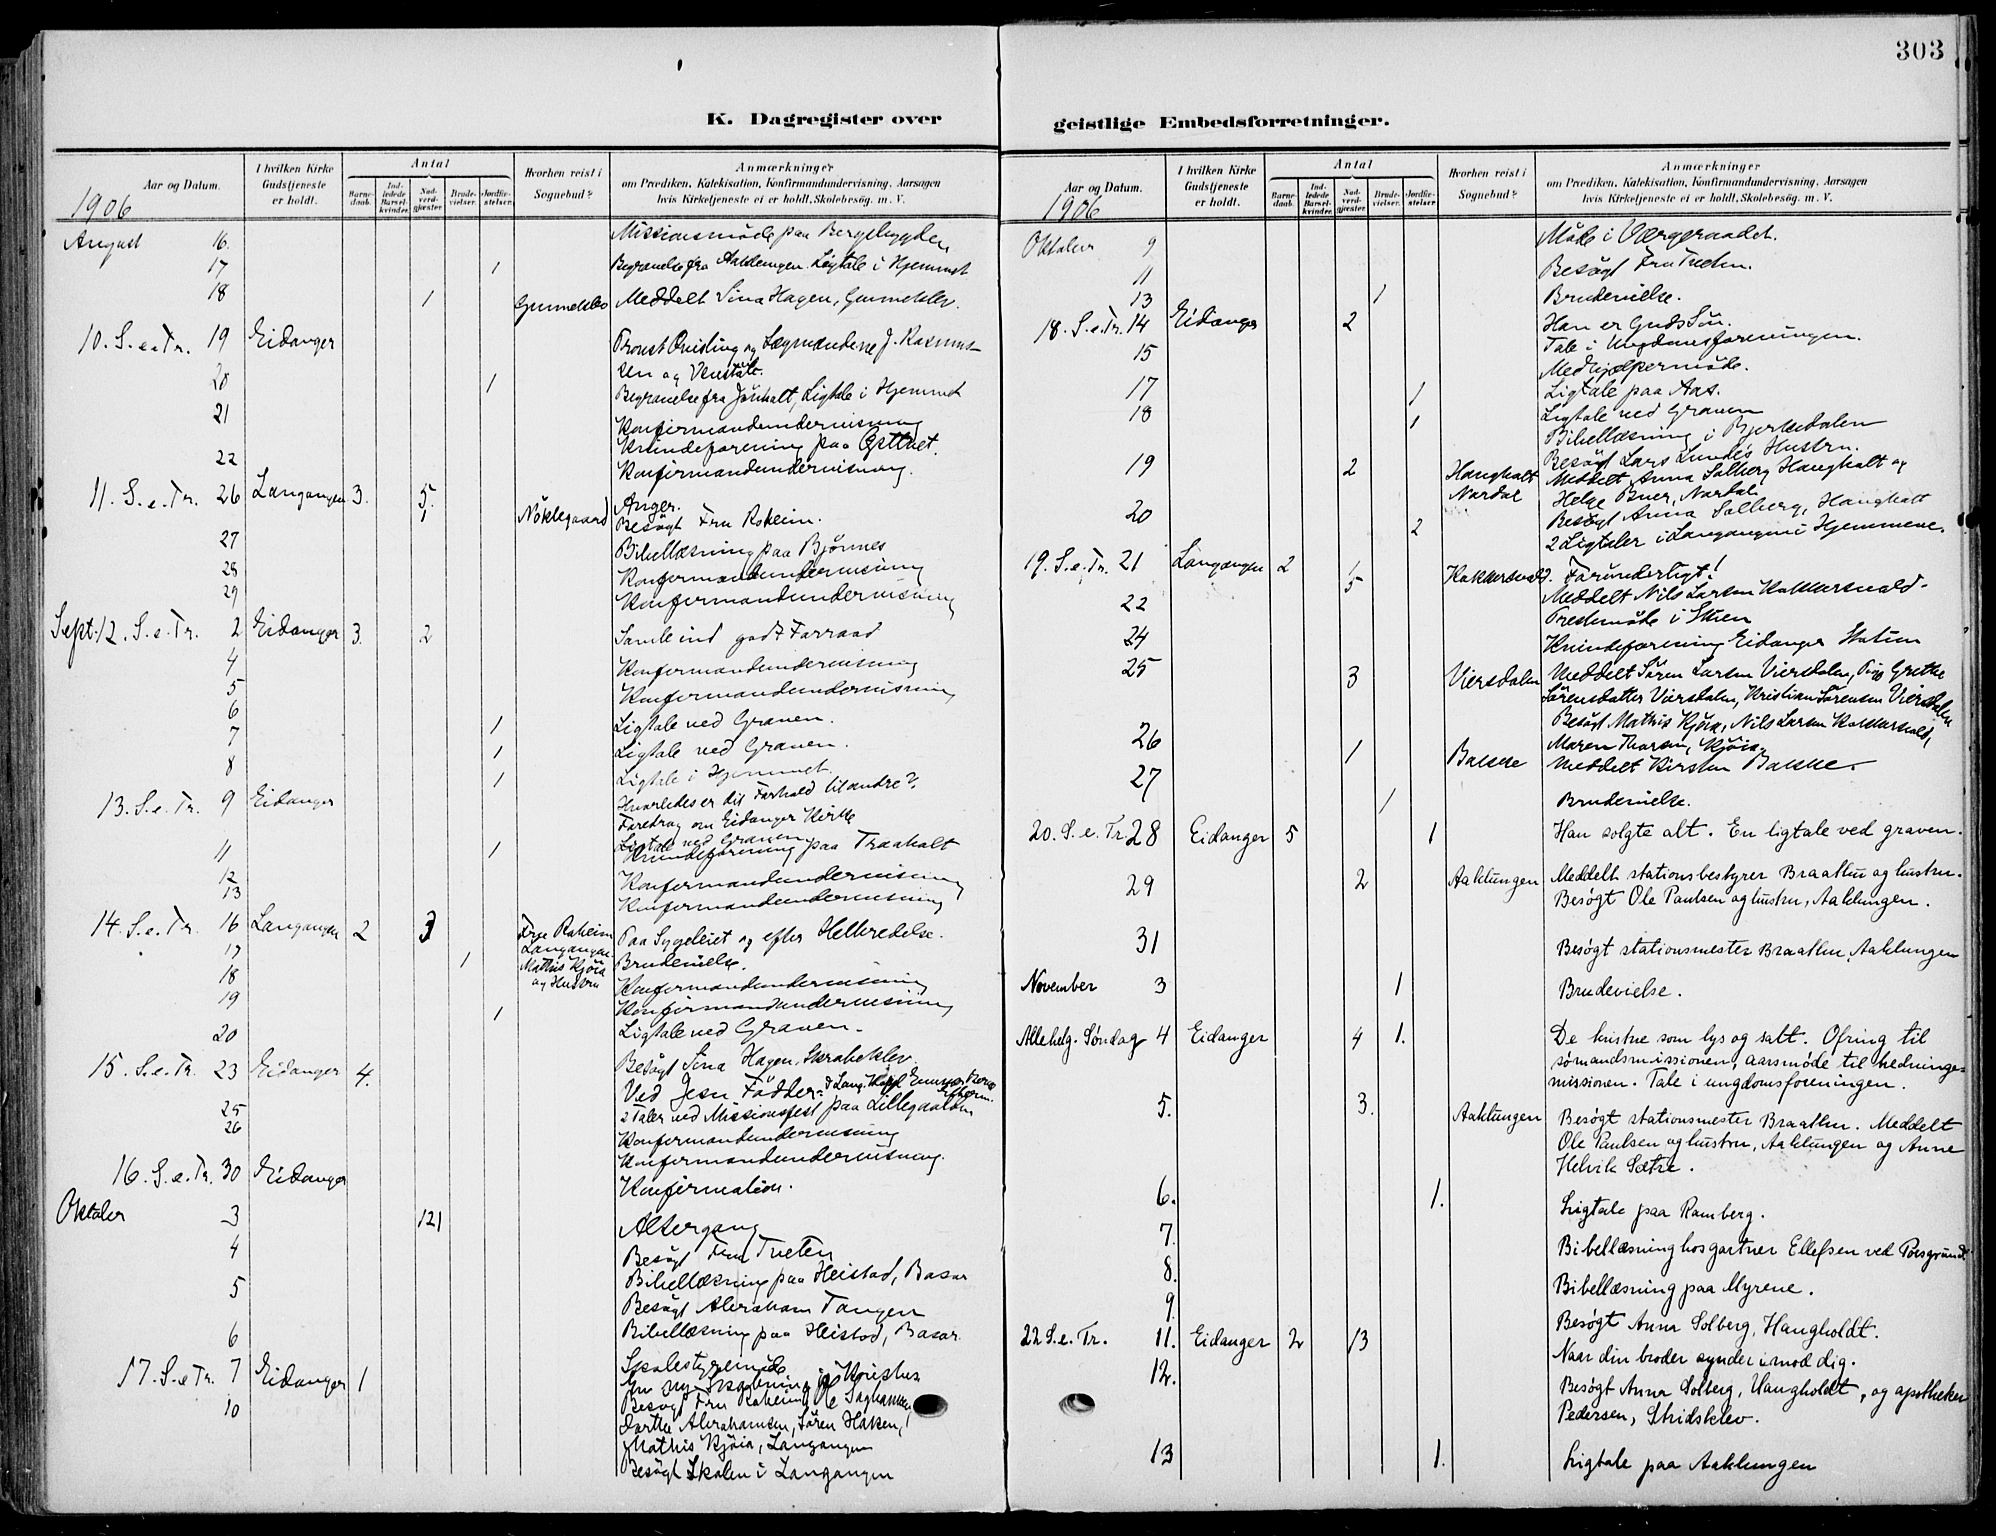 303
K. Dagregister over
geistlige Embedsforretninger.
Aar og Datum.
I hvilken Kirke Gudstjeneste er holdt.
Antal
Barnedaab.
Indledede Barselkvinder.
Nadverdgjester.
Brudevielser.
Jordfæstelser.
Hvorhen reist i Sognebud?
Anmærkninger
om Prædiken, Katekisation, Konfirmandundervisning, Aarsagen
hvis Kirketjeneste ei er holdt, Skolebesøg, m. V.
1906
August 16. Missionsmøde paa Bergsbygden
17 1 Begravelse fra Aaklungen. Ligtale i Hjemmet
18 1 Gunneklev Meddelt Sina Hagen, Gunneklev.
10. S. e. Tr. 19 Eidanger Provst Qvisling og Lægmændene J. Rasmus-
sen og Venstøb.
20 1 Begravelse fra Jønholt, Ligtale i Hjemmet
21 Konfirmandundervisning
Kvindeforening paa Østtvet.
22 Konfirmandundervisning.
11. S. e. Tr. 26 Langangen 3. 5. Anger.
1 Nøklegaard Besøgt Fru Roheim.
27 Bibellæsning paa Bjørnnes
28 Konfirmandundervisning
29 Konfirmandundervisning
Sept. 12. S. e. Tr. 2 Eidanger 3. 2 Samle ind godt Forraad
4 Konfirmandundervisning
5 Konfirmandundervisning
6 1 Ligtale ved Graven.
7 1 Ligtale ved Graven.
8 1 Ligtale i Hjemmet
13. S. e. Tr. 9 Eidanger Hvorledes er dit Forhold til andre?
Foredrag om Eidanger Kirke
1 Ligtale ved Graven
11 Kvindeforening paa Traaholt
12 Konfirmandundervisning
13 Konfirmandundervisning
14. S. e. Tr. 16 Langangen 2 3 Frue Roheim Langangen Paa Sygeleiet og efter Helbredelse.
17 1 Mathis Kjøia og Hustru Brudevielse.
18 Konfirmandundervisning
19 Konfirmandundervisning
20 1 Ligtale ved Graven.
Besøgt Sina Hagen, Skrabeklev.
15. S. e. Tr. 23 Eidanger 4. Ved Jesu Fødder.
2 Taler ved Missionsfest paa Lillegaarden
25 Konfirmandundervisning
26 Konfirmandundervisning.
16. S. e. Tr. 30 Eidanger Konfirmation.
Oktober 3 121 Altergang
4 Besøgt Fru Tveten
Bibellæsning paa Heistad, Basar
5 Besøgt Abraham Tangen
6 Bibellæsning paa Heistad, Basar
Skolestyremøde
17. S. e. Tr. 7 Eidanger 1 En ny Skabning i Kristus
10 Besøgt Fru Roheim,
Dorthe Abrahamsen, Søren Haksen,
Mathis Kjøia, Langangen
Besøgt Skolen i Langangen
Aar og Datum.
I hvilken Kirke Gudstjeneste er holdt.
Antal
Barnedaab.
Indledede Barselkvinder.
Nadverdgjester.
Brudevielser.
Jordfæstelser.
Hvorhen reist i Sognebud?
Anmærkninger
om Prædiken, Katekisation, Konfirmandundervisning, Aarsagen
hvis Kirketjeneste ei er holdt, Skolebesøg, m. V.
1906
Oktober 9 Møde i Værgeraadet.
11 Besøgt Fru Tveten.
13 1 Brudevielse.
18. S. e. Tr. 14 Eidanger 2 Han er Guds Søn.
Tale i Ungdomsforeningen.
15 Medhjælpermøde.
17 1 Ligtale paa Aas.
18 1 Ligtale ved Graven
Bibellæsning i Bjerkedalen
Besøgt Lars Lundes Hustru.
19 2 Hangholt Nordal Meddelt Anna Solberg Hangholt og
Helge Buer, Nordal.
20 Besøgt Anna Solberg, Hangholt
2 2 Ligtaler i Langangen i Hjemmene.
19. S. e. Tr. 21 Langangen 2 1 Kokkersvold. Forunderligt!
5 Meddelt Nils Larsen Kokkersvold.
22 Prestemøde i Skien
24 Kvindeforening Eidanger Station
25 3 Viersdalen Meddelt Søren Larsen Viersdalen, Pige Grethe
Sørensdatter Viersdalen, Kristian Sørensen Viersdalen
Besøgt Mathis Kjøia, Nils Larsen Kokkersvold,
26 Maren Thorsen, Kjøia.
1 Bakke Meddelt Kirsten Bakke.
27 1 Brudevielse.
20. S. e. Tr. 28 Eidanger 5 1 Han solgte alt. En ligtale ved graven.
29 2 Aaklungen Meddelt stationsbestyrer Braathen og hustru.
Besøgt Ole Paulsen og hustru, Aaklungen.
31 Besøgt stationsmester Braathen, Aaklungen
November 3 1 Brudevielse.
Allehelg. Søndag 4 Eidanger 4 1. De kristne som lys og salt. Ofring til
sømandsmissionen, aarsmøde til hedninge-
missionen. Tale i ungdomsforeningen.
5. 3. Aaklungen Besøgt stationsmester Braathen. Meddelt
Ole Paulsen og hustru, Aaklungen og Anne
Helvik Sætre.
6. 1. Ligtale paa Ramberg.
7. Bibellæsning hos gartner Ellefsen ved Porsgrund.
8. Bibellæsning paa Myrene.
9. Besøgt Anna Solberg, Hangholdt.
22 S. e. Tr. 11. Eidanger 2 13 Naar din broder synder imod dig.
12. Besøgt Anna Solberg, Hangholdt, og apotheker
Pedersen, Stridsklev.
13 1. Ligtale paa Aaklungen